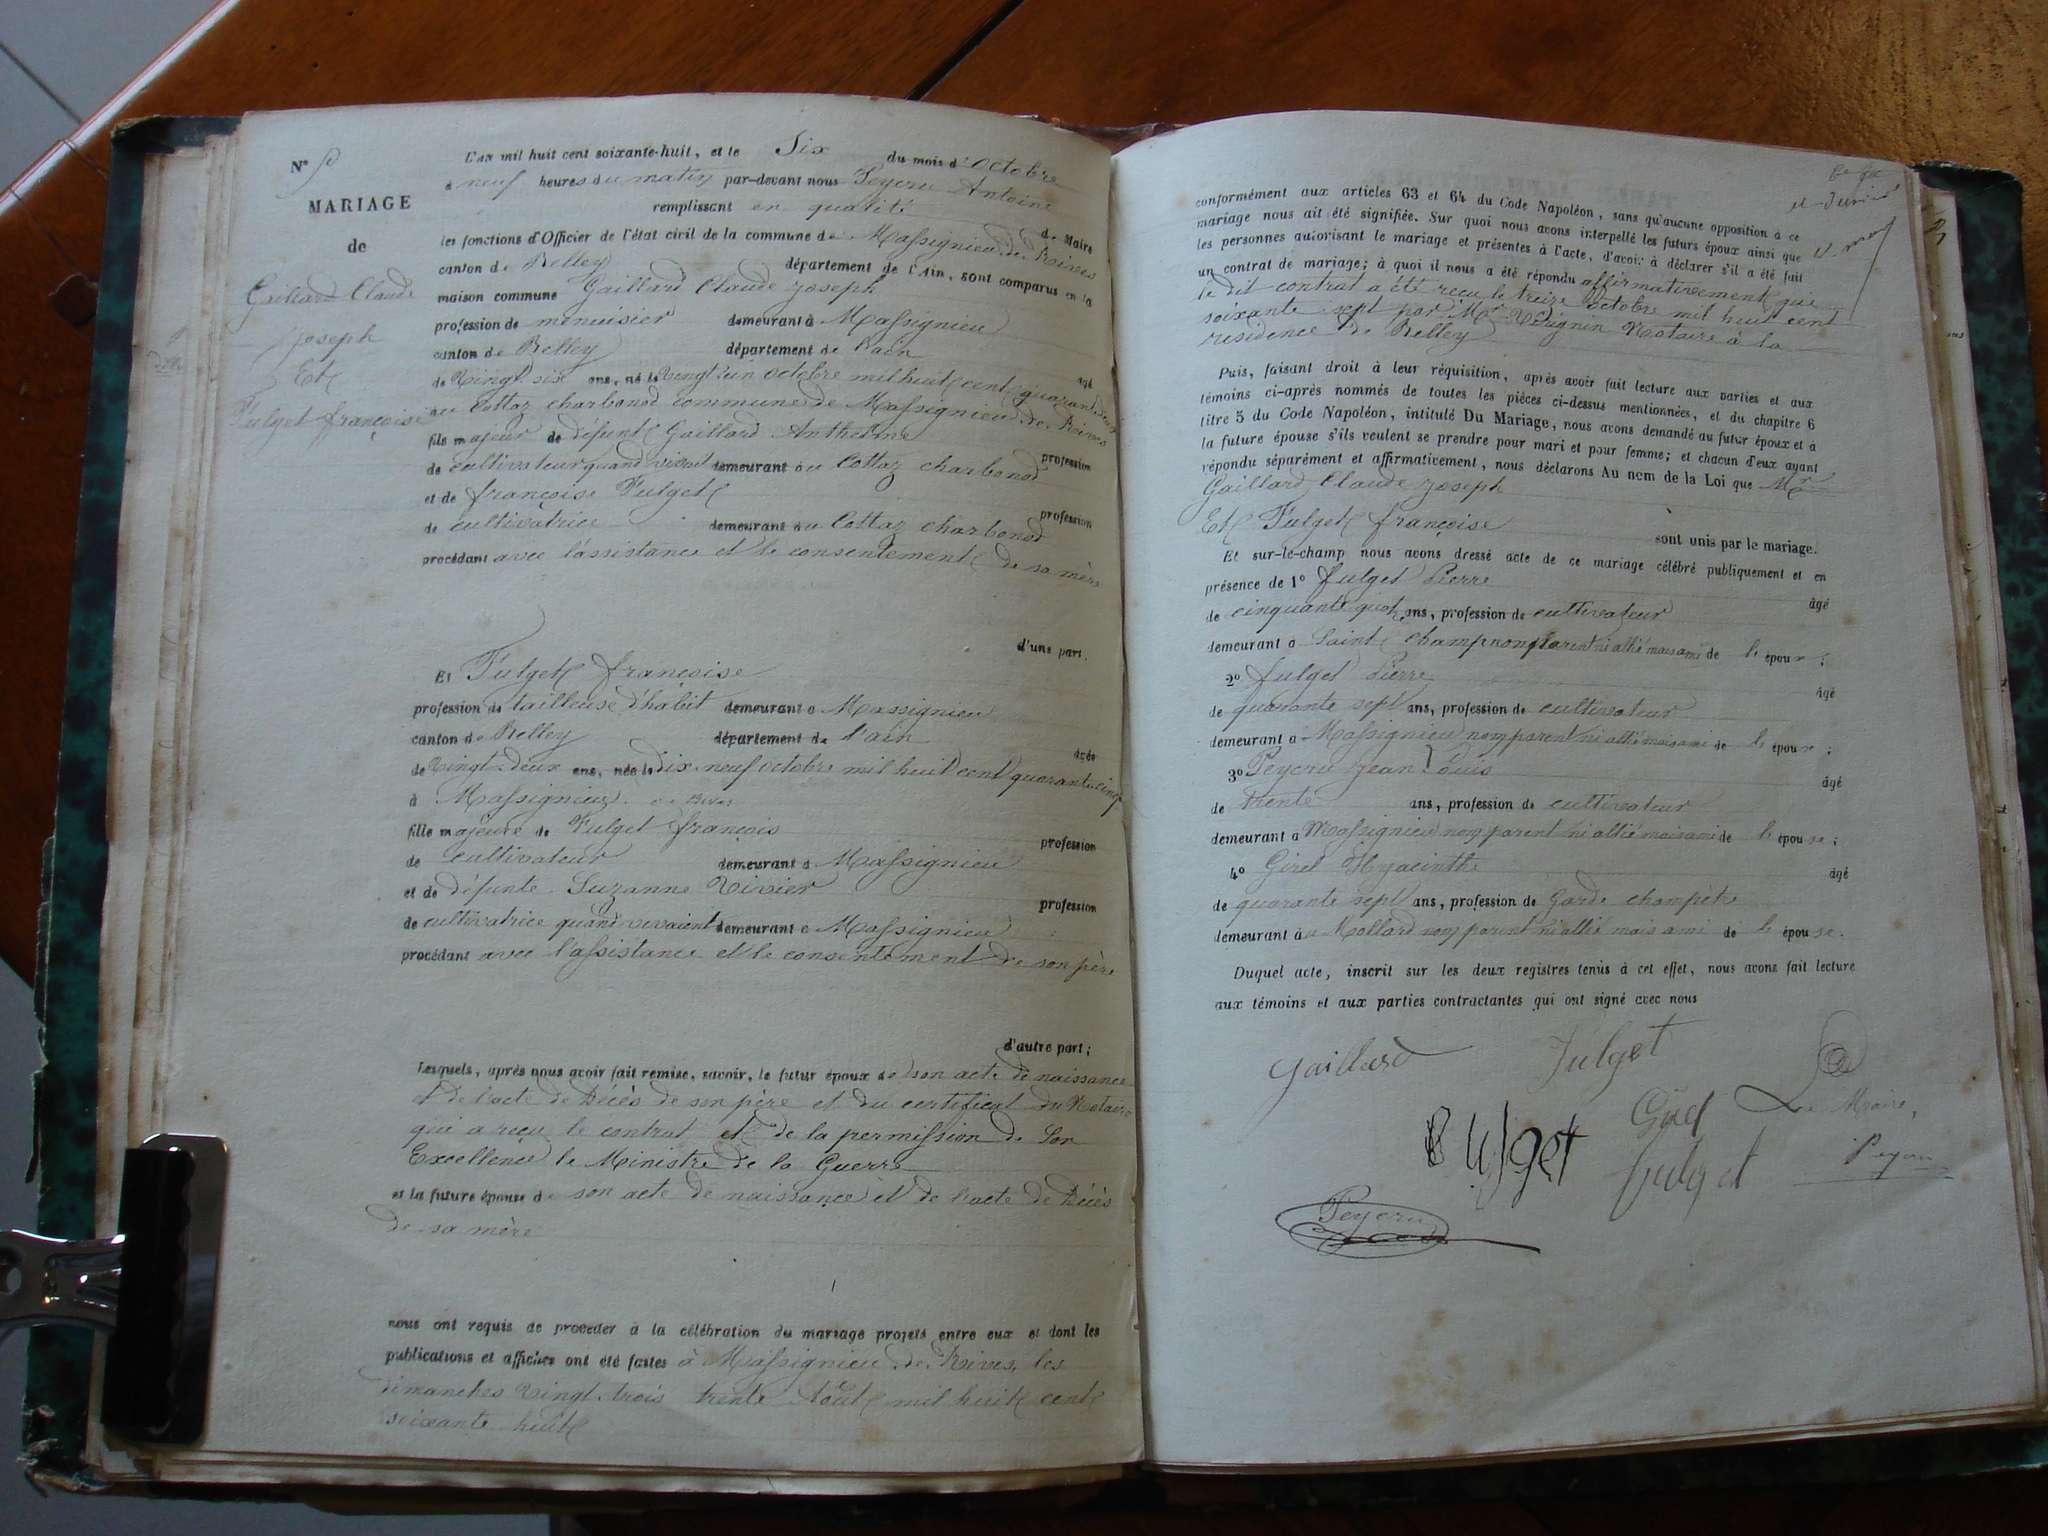 N°
L'an mil huit cent soixante-huit, et le Six du mois d'Octobre
à neuf heures du matin par-devant nous Peyeru Antoine
remplissant en qualité de Maire
les fonctions d'Officier de l'état civil de la commune de Massignieu de Rives
canton de Belley département de l'Ain, sont comparus en la
maison commune Gaillard Claude Joseph
profession de menuisier demeurant à Massignieu
canton de Belley département de l'ain
MARIAGE
de
Gaillard Claude
Joseph
Et
Fulget françoise
âgé
de Vingt six ans, né le Vingt un octobre mil huit cent quarante
au Cottaz charbonod commune de Massignieu de Rives
fils majeur de défunt Gaillard Anthelme
profession
de cultivateur quand vivait demeurant au Cottaz charbonod
et de françoise Fulget
profession
de cultivatrice demeurant au Cottaz charbonod
procédant avec l'assistance et le consentement de sa mère
d'une part.
Et Fulget françoise
profession de tailleuse d'habit demeurant à Massignieu
canton de Belley département de l'ain
agée
de Vingt-deux ans, née le dix-neuf octobre mil huit cent quarante cinq
à Massignieu de Rives
fille majeure de Fulget françois
profession
de cultivateur demeurant à Massignieu
et de défunte Suzanne Vivier
profession
de cultivatrice quand vivait demeurant à Massignieu
procédant avec l'assistance et le consentement de son père
d'autre part;
Lesquels, après nous avoir fait remise, savoir, le futur époux de son acte de naissance
et de l'acte de Décès de son père et du certificat du Notaire
qui a reçu le contrat et de la permission de Son
Excellence le Ministre de la Guerre
et la future épouse de son acte de naissance et de l'acte de Décès
de sa mère
nous ont requis de procéder à la célébration du mariage projeté entre eux et dont les
publications et affiches ont été faites à Massignieu de Rives, les
dimanches vingt-trois trente Août mil huit cent
soixante huit
conformément aux articles 63 et 64 du Code Napoléon, sans qu'aucune opposition à ce
mariage nous ait été signifiée. Sur quoi nous avons interpellé les futurs époux ainsi que
les personnes autorisant le mariage et présentes à l'acte, d'avoir à déclarer s'il a été fait
un contrat de mariage; à quoi il nous a été répondu affirmativement que
le dit contrat a été reçu le treize Octobre mil huit cent
soixante sept par Mr Notaire à la
résidence de Belley
Puis, faisant droit à leur réquisition, après avoir fait lecture aux parties et aux
témoins ci-après nommés de toutes les pièces ci-dessus mentionnées, et du chapitre 6
titre 5 du Code Napoléon, intitulé Du Mariage, nous avons demandé au futur époux et à
la future épouse s'ils veulent se prendre pour mari et pour femme; et chacun d'eux ayant
répondu séparément et affirmativement, nous déclarons Au nom de la Loi que Mr
Gaillard Claude Joseph
Et Fulget françoise
sont unis par le mariage.
Et sur-le-champ nous avons dressé acte de ce mariage célébré publiquement et en
présence de 1° fulget Pierre
âgé
de cinquante ans, profession de cultivateur
demeurant à Saint Champ non parent ni allié mais ami de l'époux;
2° fulget Pierre
âgé
de quarante sept ans, profession de cultivateur
demeurant à Massignieu non parent ni allié mais ami de l'époux;
3° Peyeru Jean Louis
âgé
de trente ans, profession de cultivateur
demeurant à Massignieu non parent ni allié mais ami de l'épouse;
4° Girel Hyacinthe
âgé
de quarante sept ans, profession de Garde champêtre
demeurant au Mollard non parent ni allié mais ami de l'épouse.
Duquel acte, inscrit sur les deux registres tenus à cet effet, nous avons fait lecture
aux témoins et aux parties contractantes qui ont signé avec nous
Gaillard Fulget
Girel Le Maire,
fulget
Peyeru
Peyeru